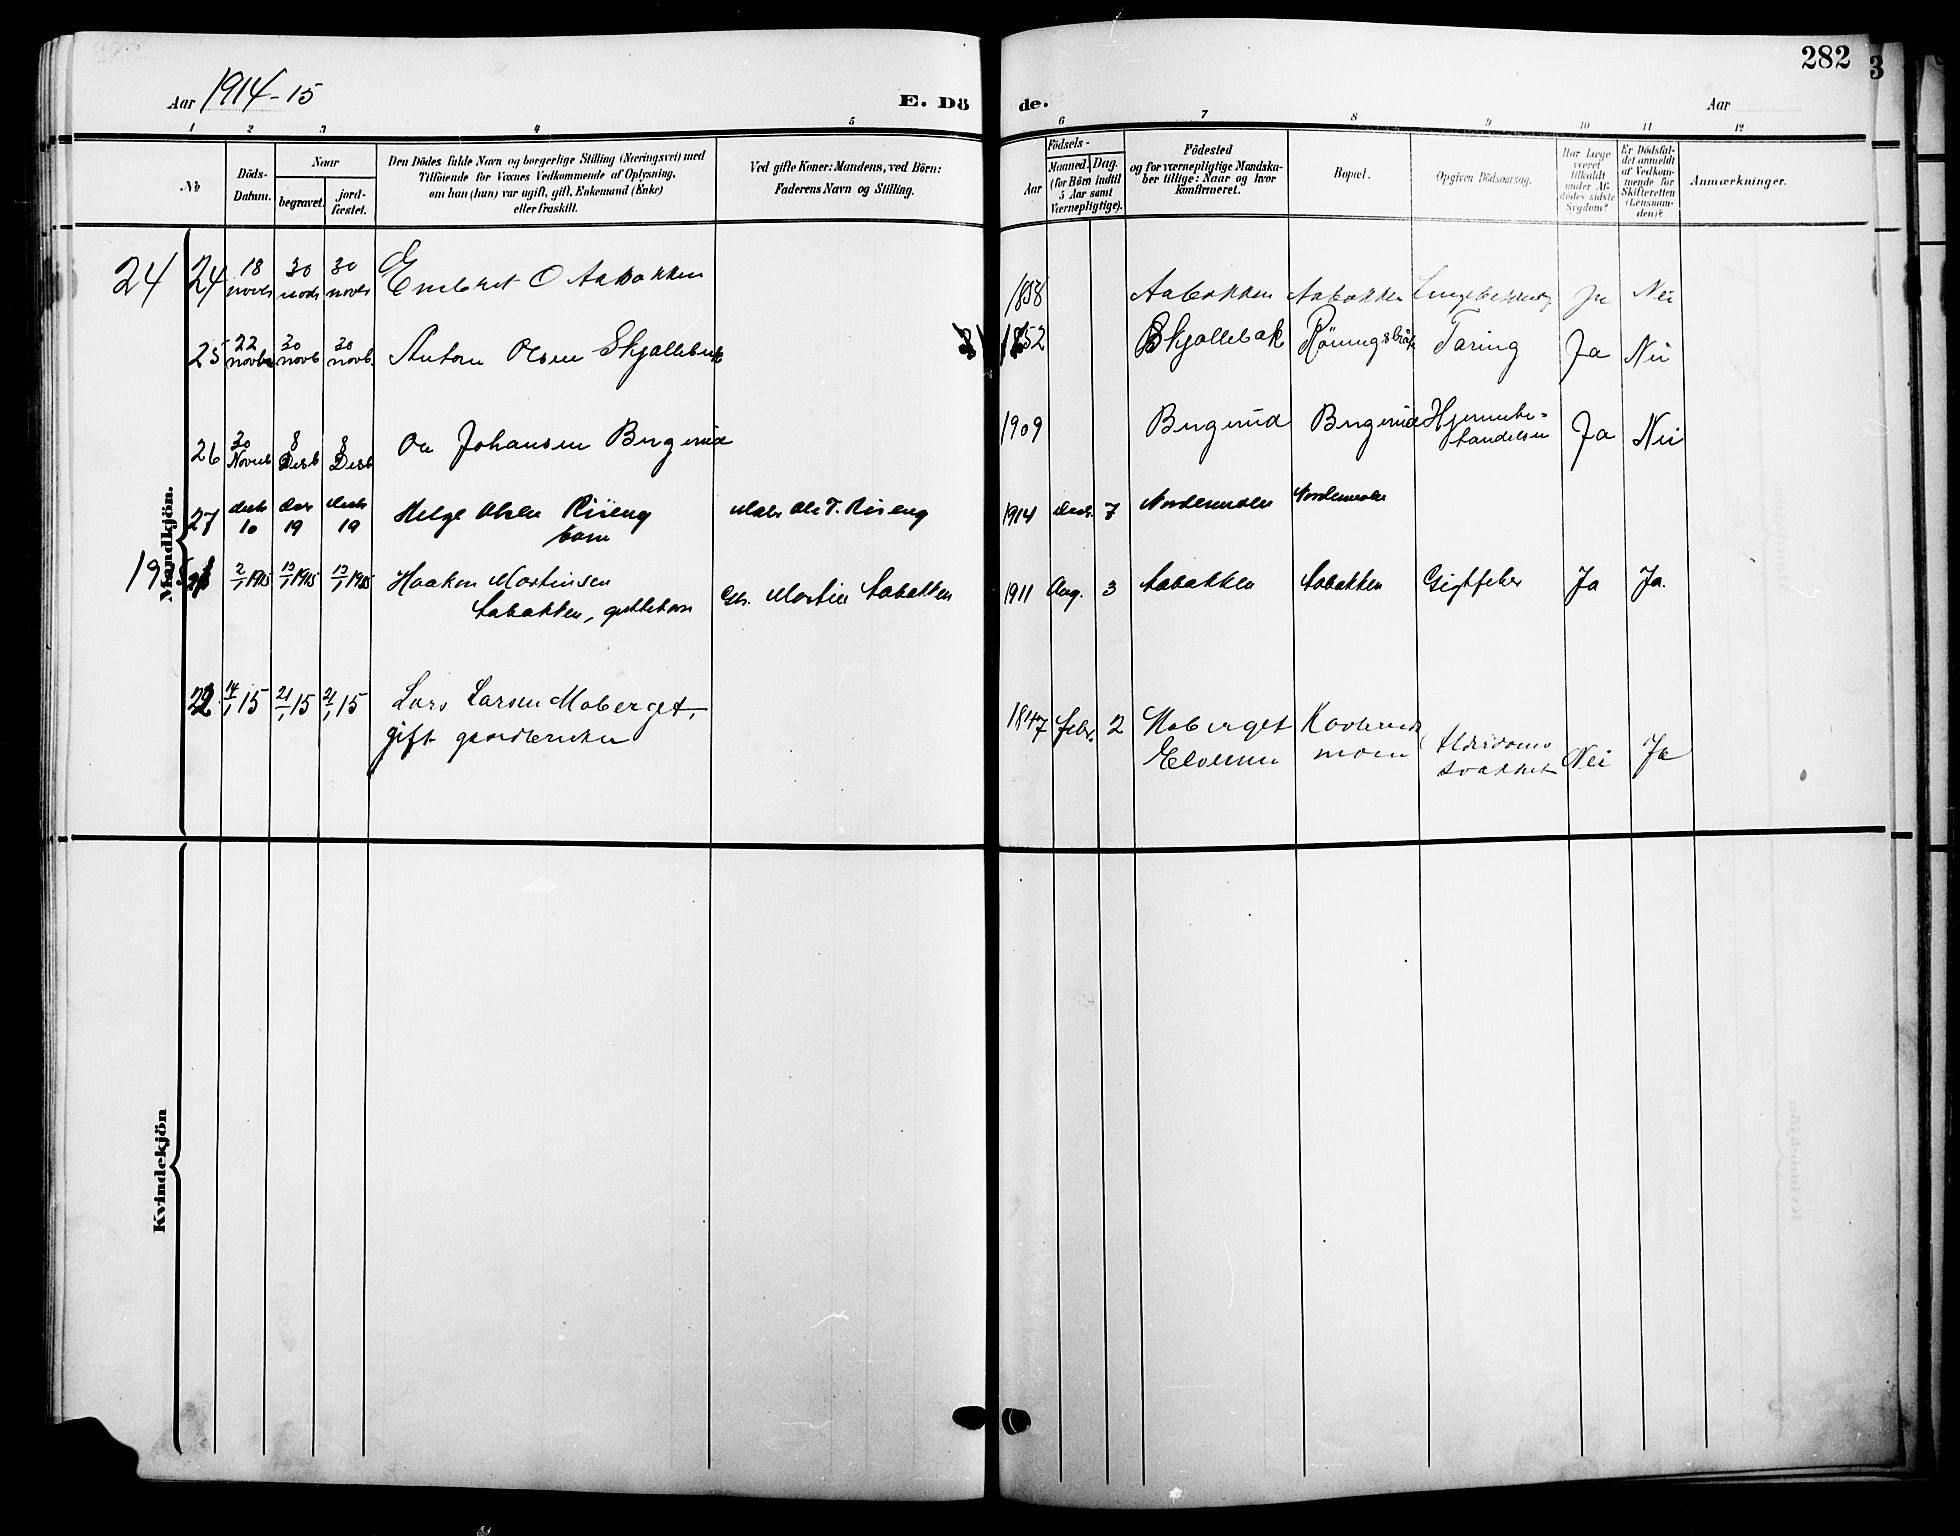 Aar 1914-15
E. Dö
de.
282
3
Aar
1 2 3 4 5 6 7 8 9 10 11 12
№
Döds-
Datum.
Naar
begravet.
jord-
fæstet.
Den Dödes fulde Navn og borgerlige Stilling (Næringsvei) med
Tilföiende for Voxnes Vedkommende af Oplysning,
om han (hun) var ugift, gift, Enkemand (Enke)
eller fraskilt.
Ved gifte Koner: Mandens, ved Börn:
Faderens Navn og Stilling.
Födsels-
Aar
Maaned. Dag.
(for Börn indtil
5 Aar samt
Værnepligtige).
Födested
og for værnepligtige Mandska-
ber tillige: Naar og hvor
konfirmeret.
Bopæl.
Opgiven Dödsaarsag.
Har Læge
været
tilkaldt
under Af-
dödes sidste
Sygdom?
Er Dödsfal-
det anmeldt
af Vedkom-
mende for
Skifteretten
(Lensman-
den)?
Anmærkninger.
Mandkjön.
24 24 18 novb 30 novb 30 novb Embret O Aabakken 1858 Aabakken Aabakken Ja Nei
25 22 novb 30 novb 30 novb. Anton Olsen Skjallebak 1852 Skjallebak Tæring Ja Nei
26 30 Novb 8 Desb 8 Desb Ole Johansen Bergerud 1909 Bergerud Bergerud Hjernebe-
tændelse Ja Nei
27 decb 10 dec 19 decb 19 Helge Olsen Riseng
barn
Maler Ole T. Riseng 1914 decb. 7
2/1 1915 13/1 1915 13/1 1915 Haakon Martinsen
Aabakken, guttebarn
Gb. Martin Aabakken 1911 Aug. 3 Aabakken Aabakken Gigtfeber Ja Ja.
2 14/1 15 21/1 15 21/1 15 Lars Larsen Moberget,
gift gaardbruker
1847 febr. 2 Moberget
Elverum
Alderdoms
svakhet Nei Ja
Kvindekjön